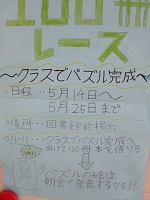 100冊
レース
～クラスでパズル完成へ～
・日程…5月14日～
5月25日まで
・場所…図書館前掲示
・ルール…クラスでパズル完成へ
向けて100冊本を借りる
パズルの絵は
朝会で発表するかも!!